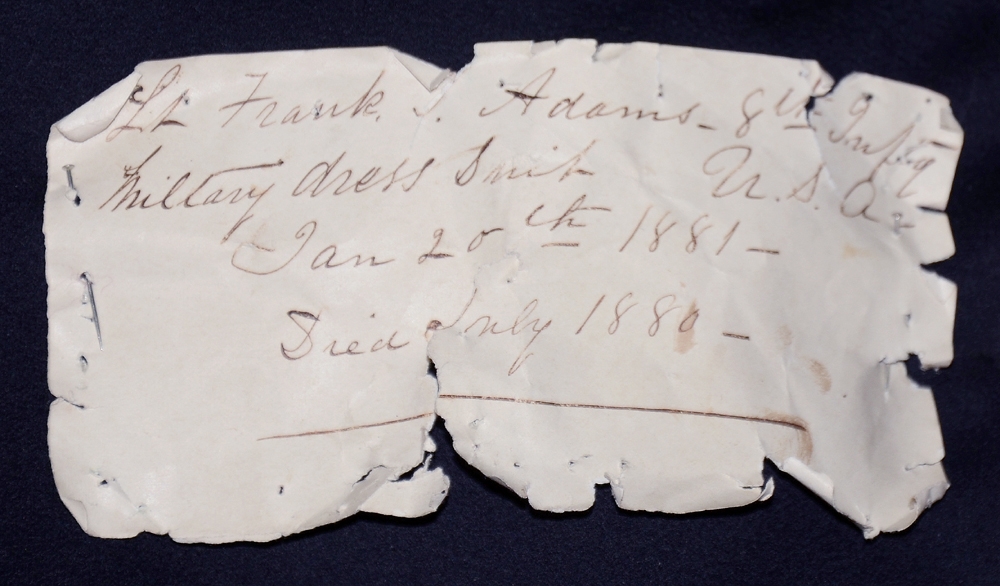 Lt Frank. S. Adams - 8th Inftq
Miltary dress Suit U. S. A.
Jan 20th 1881 -
Died July 1880 -